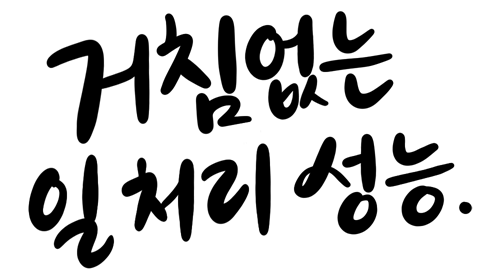 거침없는
일처리 성능.